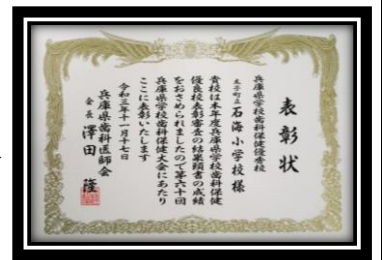 表彰状
兵庫県学校歯科保健優秀校
太子町立 石海小学校様
貴校は本年度兵庫県学校歯科保健
優良校表彰審査の結果頭書の成績
をおさめられましたので第六十回
兵庫県学校歯科保健大会にあたり
ここに表彰いたします
令和三年十一月十七日
兵庫県歯科医師会
会長 澤田 隆